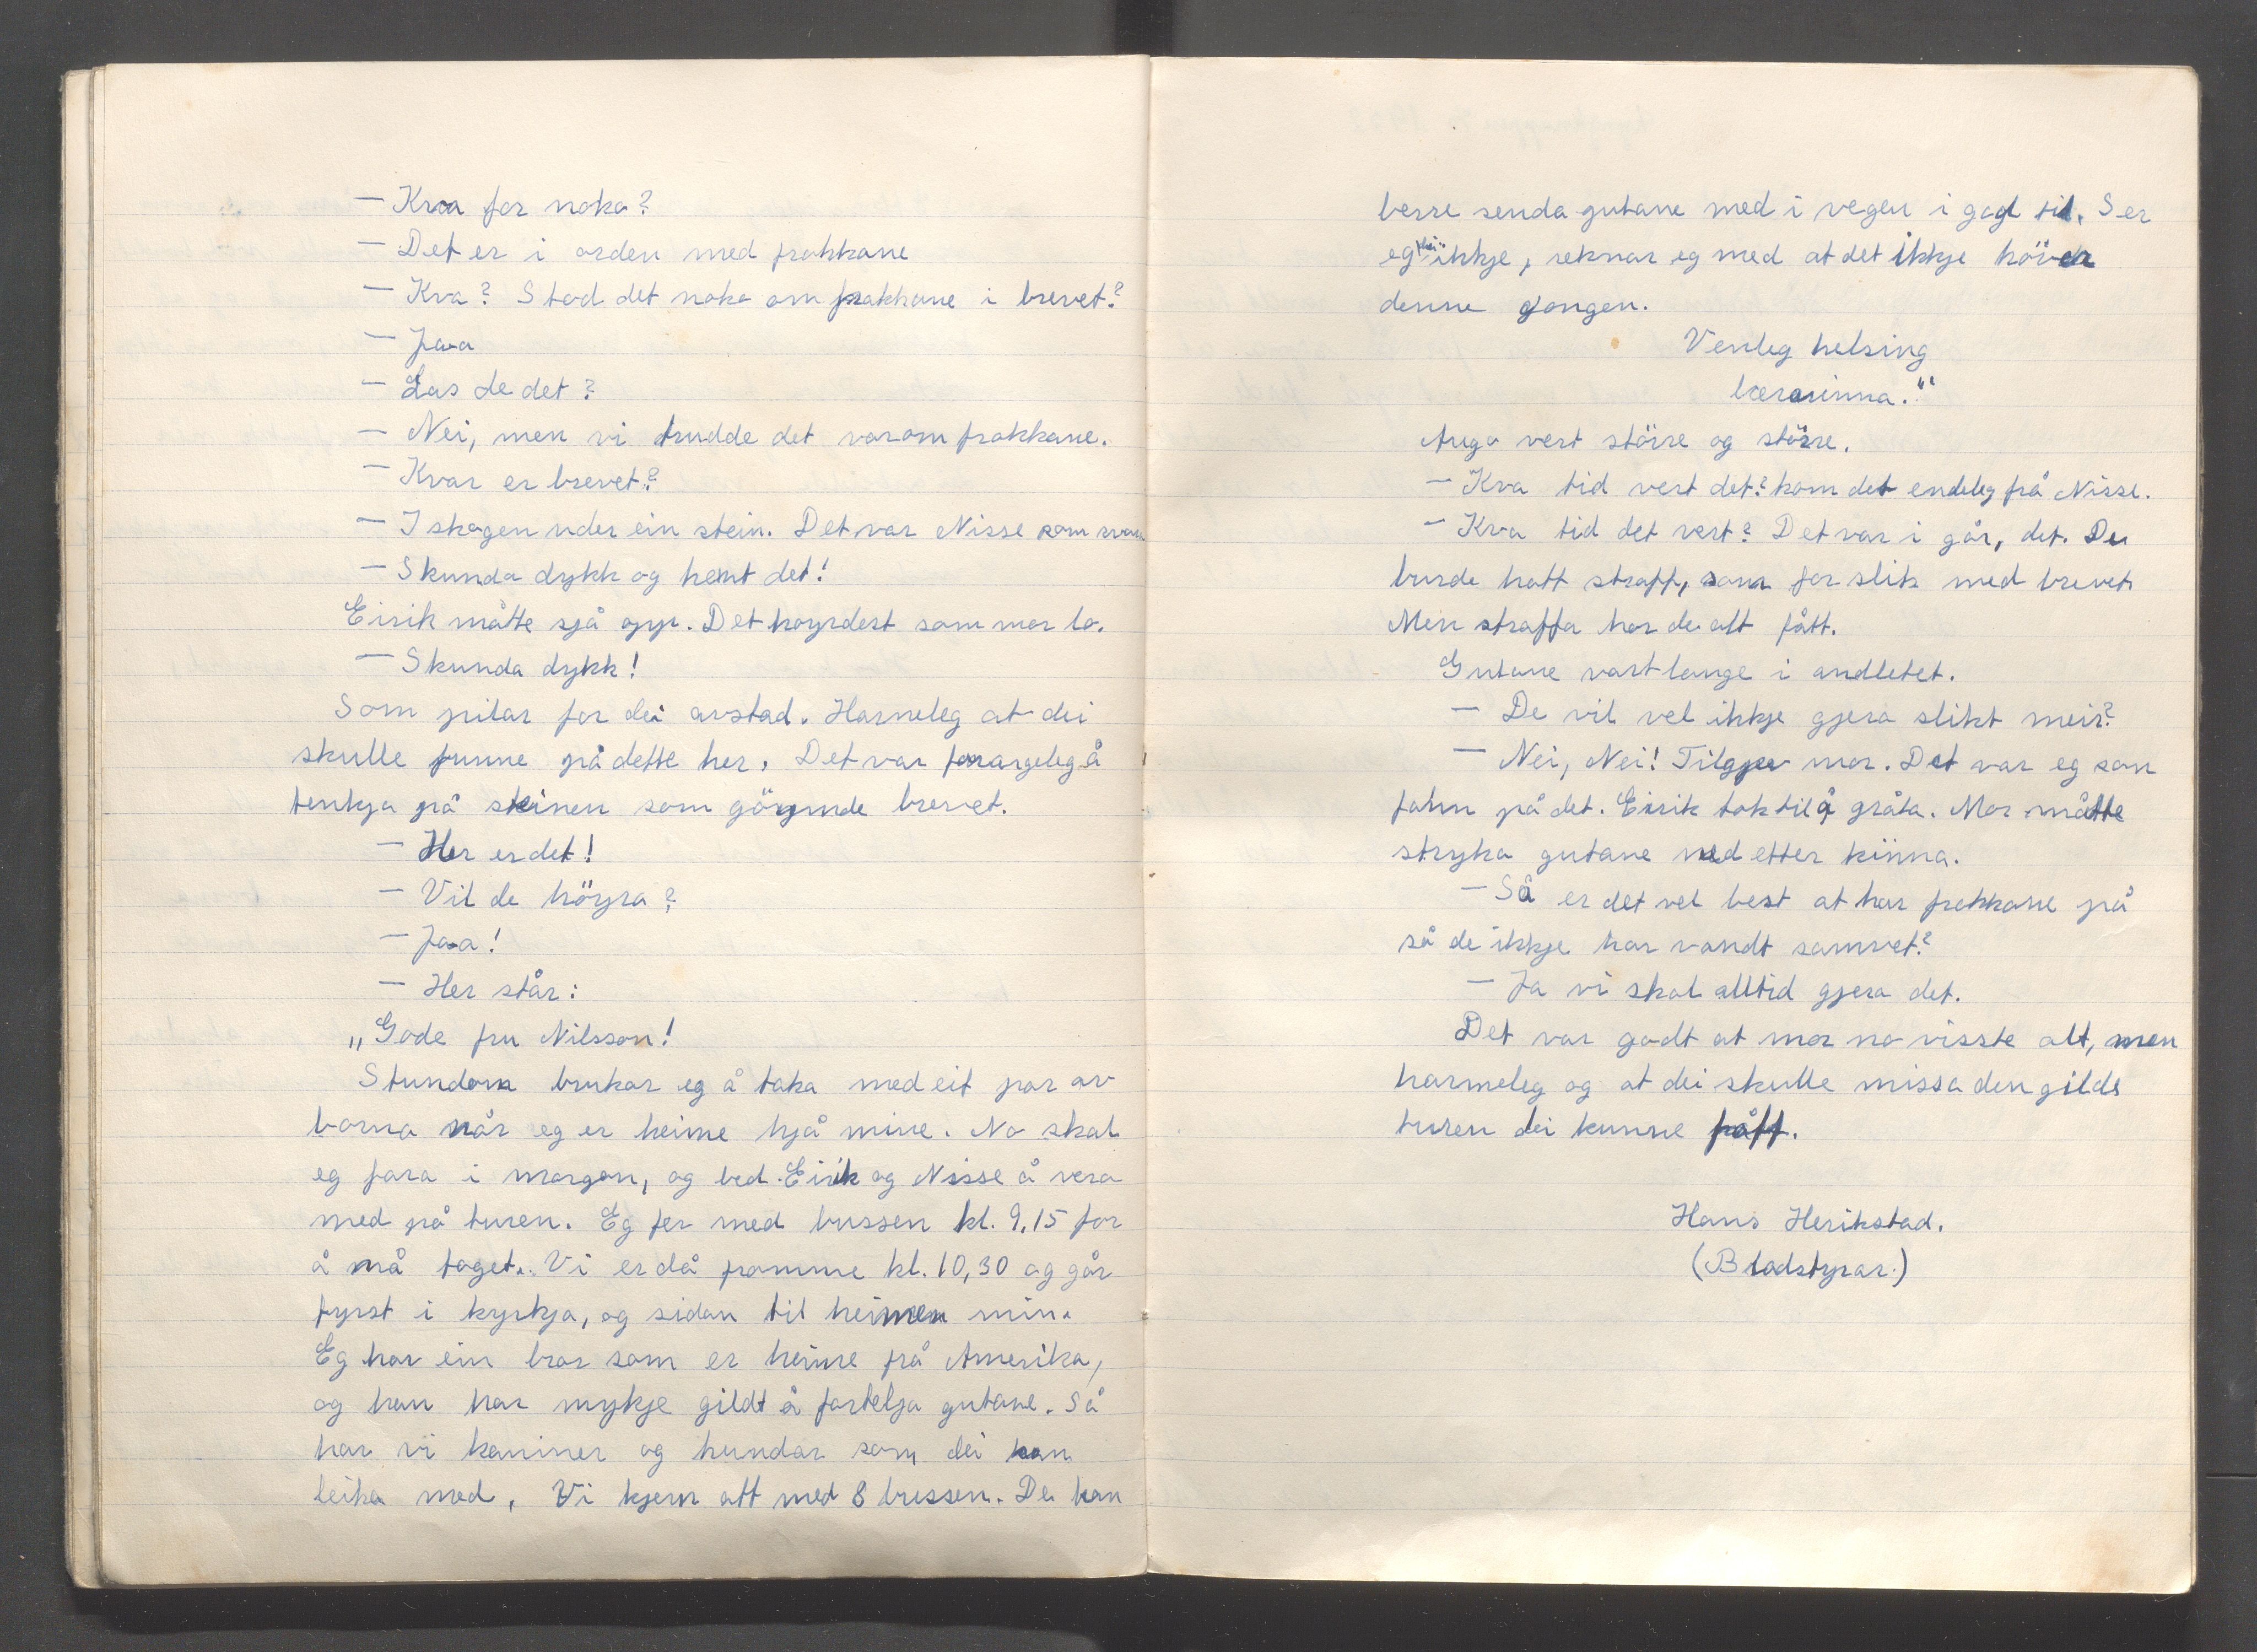 — Kva for noko?
— Det er i orden med frakkane
— Kva? Stod det noko om frakkane i brevet?
— Ja-a
— Las de det?
— Nei, men vi trudde det var om frakkane.
— Kvar er brevet?
— I skogen uder ein stein. Det var Nisse som svara
— Skunda dykk og hent det!
Eirik måtte sjå opp. Det høyrdest som mor lo.
— Skunda dykk!
Som pilar for dei avstad. Harmeleg at dei
skulle funne på dette her. Det var forargeleg å
tenkja på steinen som göymde brevet.
— Her er det!
— Vil de höyra?
— Ja-a!
— Her står:
„Gode fru Nilsson!
Stundom brukar eg å taka med eit par av
borna når eg er heime hjå mine. No skal
eg fara i morgon, og bed Eirik og Nisse å vera
med på turen. Eg fer med bussen kl. 9.15 for
å nå toget. Vi er då framme kl. 10,30 og går
fyrst i kyrkja, og sidan til heimen min.
Eg har ein bror som er heime frå Amerika,
og han har mykje gildt å fortelja gutane. Så
har vi kaniner og hundar som dei kan
leika med. Vi kjem att med 8 bussen. De kan
berre senda gutane med i vegen i god tid. Ser
eg dei ikkje, reknar eg med at det ikkje höver
denne gongen.
Venleg helsing
lærarinna."
Auga vert större og större.
— Kva tid vert det? kom det endeleg frå Nisse.
— Kva tid det vert? Det var i går, det. De
burde hatt straff, som for slik med brevet.
Men straffa har de alt fått.
Gutane vart lange i andletet.
— De vil vel ikkje gjera slikt meir?
— Nei, Nei! Tilgjev mor. Det var eg som
fahn på det. Eirik tok til å gråta. Mor måtte
stryka gutane ned etter kinna.
— Så er det vel best at har frakkane på
så de ikkje har vondt samvet?
— Ja vi skal alltid gjera det.
Det var godt at mor no visste alt, men
harmeleg og at dei skulle missa den gilde
turen dei kunne fått.
Hans Herikstad.
(Bladstyrar.)